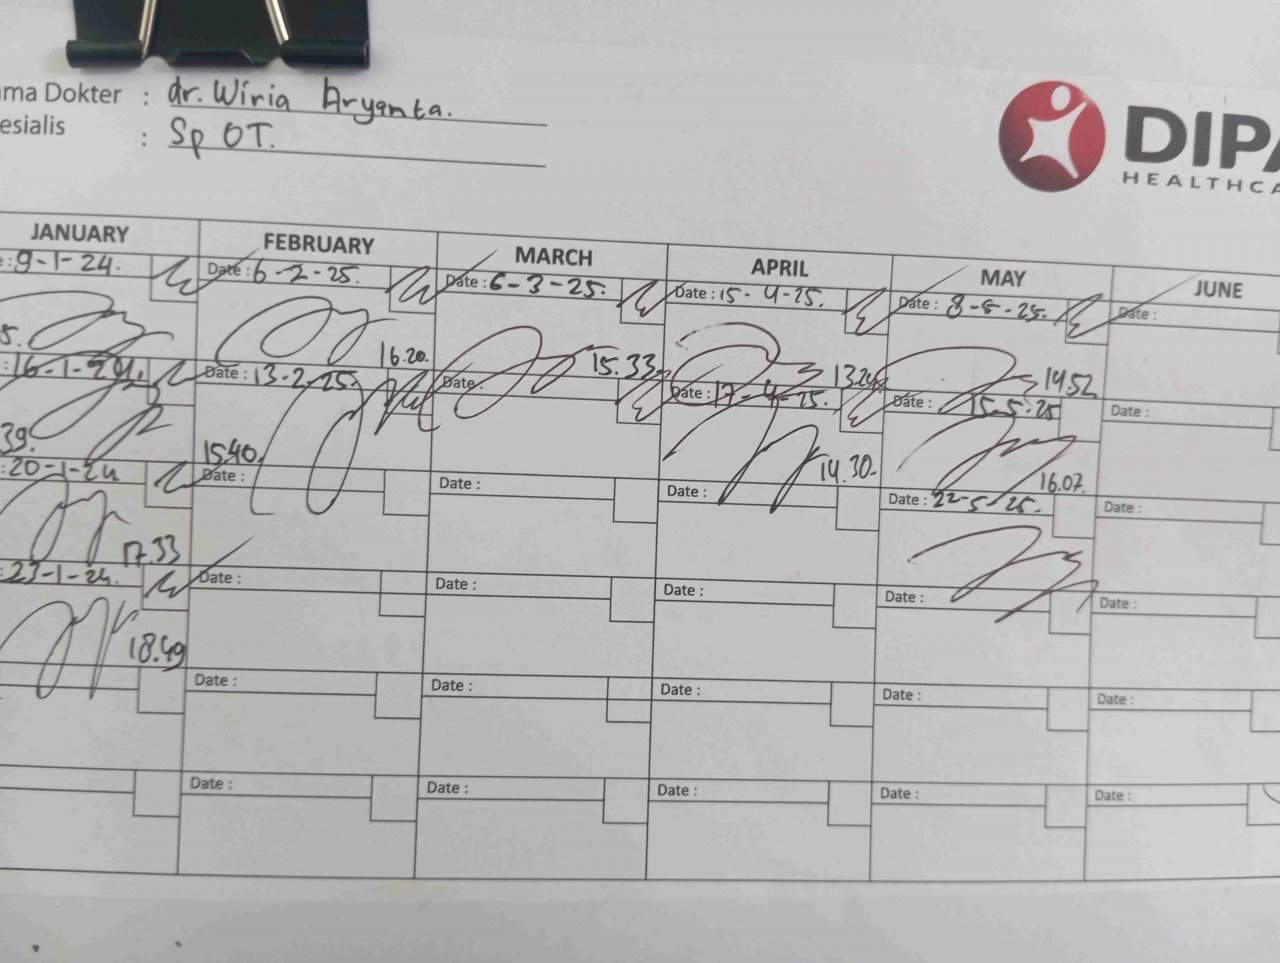 ma Dokter : dr. Wiria Aryanta.
esialis : Sp OT.
DIPA
HEALTHCA
JANUARY FEBRUARY MARCH APRIL MAY JUNE
:9-1-24. Date : 6-2-25. Date : 6-3-25. Date : 15-4-25. Date : 8-5-25. Date :
5. 16.20. 15.33. 13.24 14.52
:16-1-24. Date : 13-2-25. Date : Date : 17-4-25. Date : 15-5-25 Date :
39. 15.40. 14.30. 16.07.
:20-1-24 Date : Date : Date : Date : 22-5-25. Date :
17.33
:23-1-24. Date : Date : Date : Date : Date :
18.49
Date : Date : Date : Date : Date :
Date : Date : Date : Date : Date :